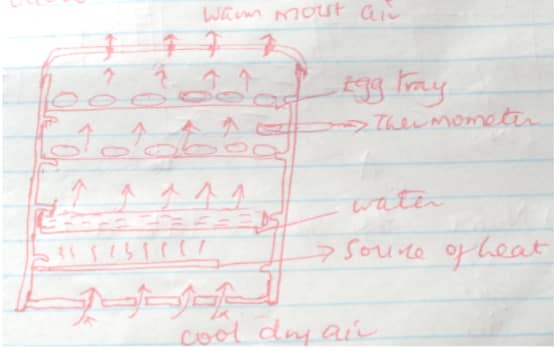 warm moist air
Egg tray
Thermometer
water
Source of heat
cool dry air